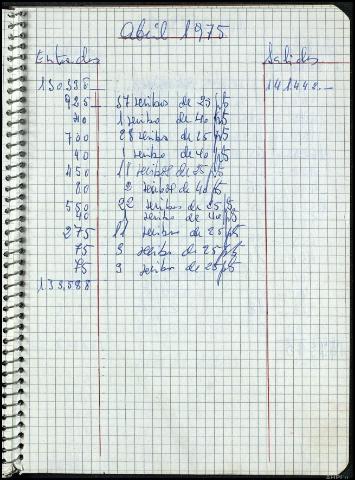 Abril 1975
Entradas Salidas
130.338 141.442.—
925 37 recibos de 25 pts
40 1 recibo de 40 pts
700 28 recibos de 25 pts
40 1 recibo de 40 pts
450 18 recibos de 25 pts
80 2 recibos de 40 pts
550 22 recibos de 25 pts
40 1 recibo de 40 pts
275 11 recibos de 25 pts
75 3 recibos de 25 pts
75 3 recibos de 25 pts
133.588